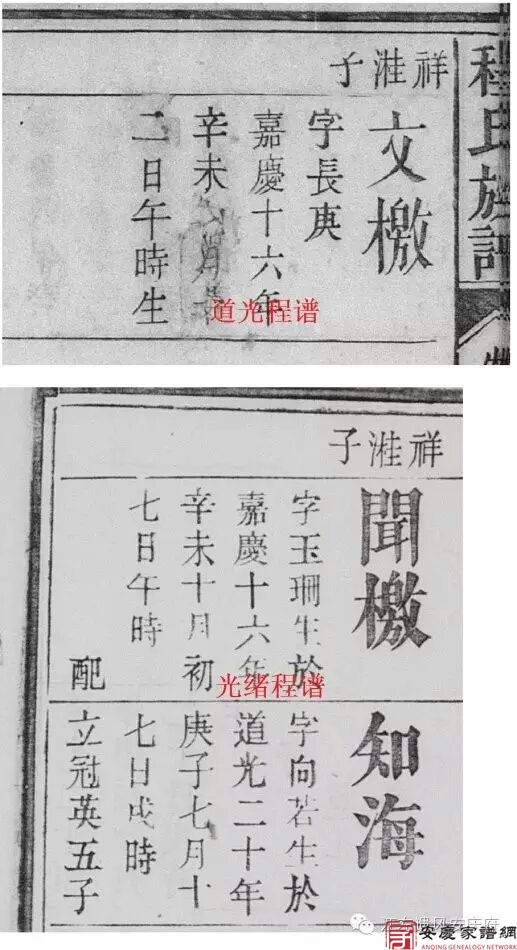 程氏族譜
祥溎子
文檄
字長庚
嘉慶十六年
辛未 月
二日午時生
道光程谱
祥溎子
聞檄
字玉珊生於
嘉慶十六年
辛未十月初
七日午時
配
光绪程谱
知海
字向若生於
道光二十年
庚子七月十
七日戌時
立冠英五子
安慶家譜網
ANQING GENEALOGY NETWORK